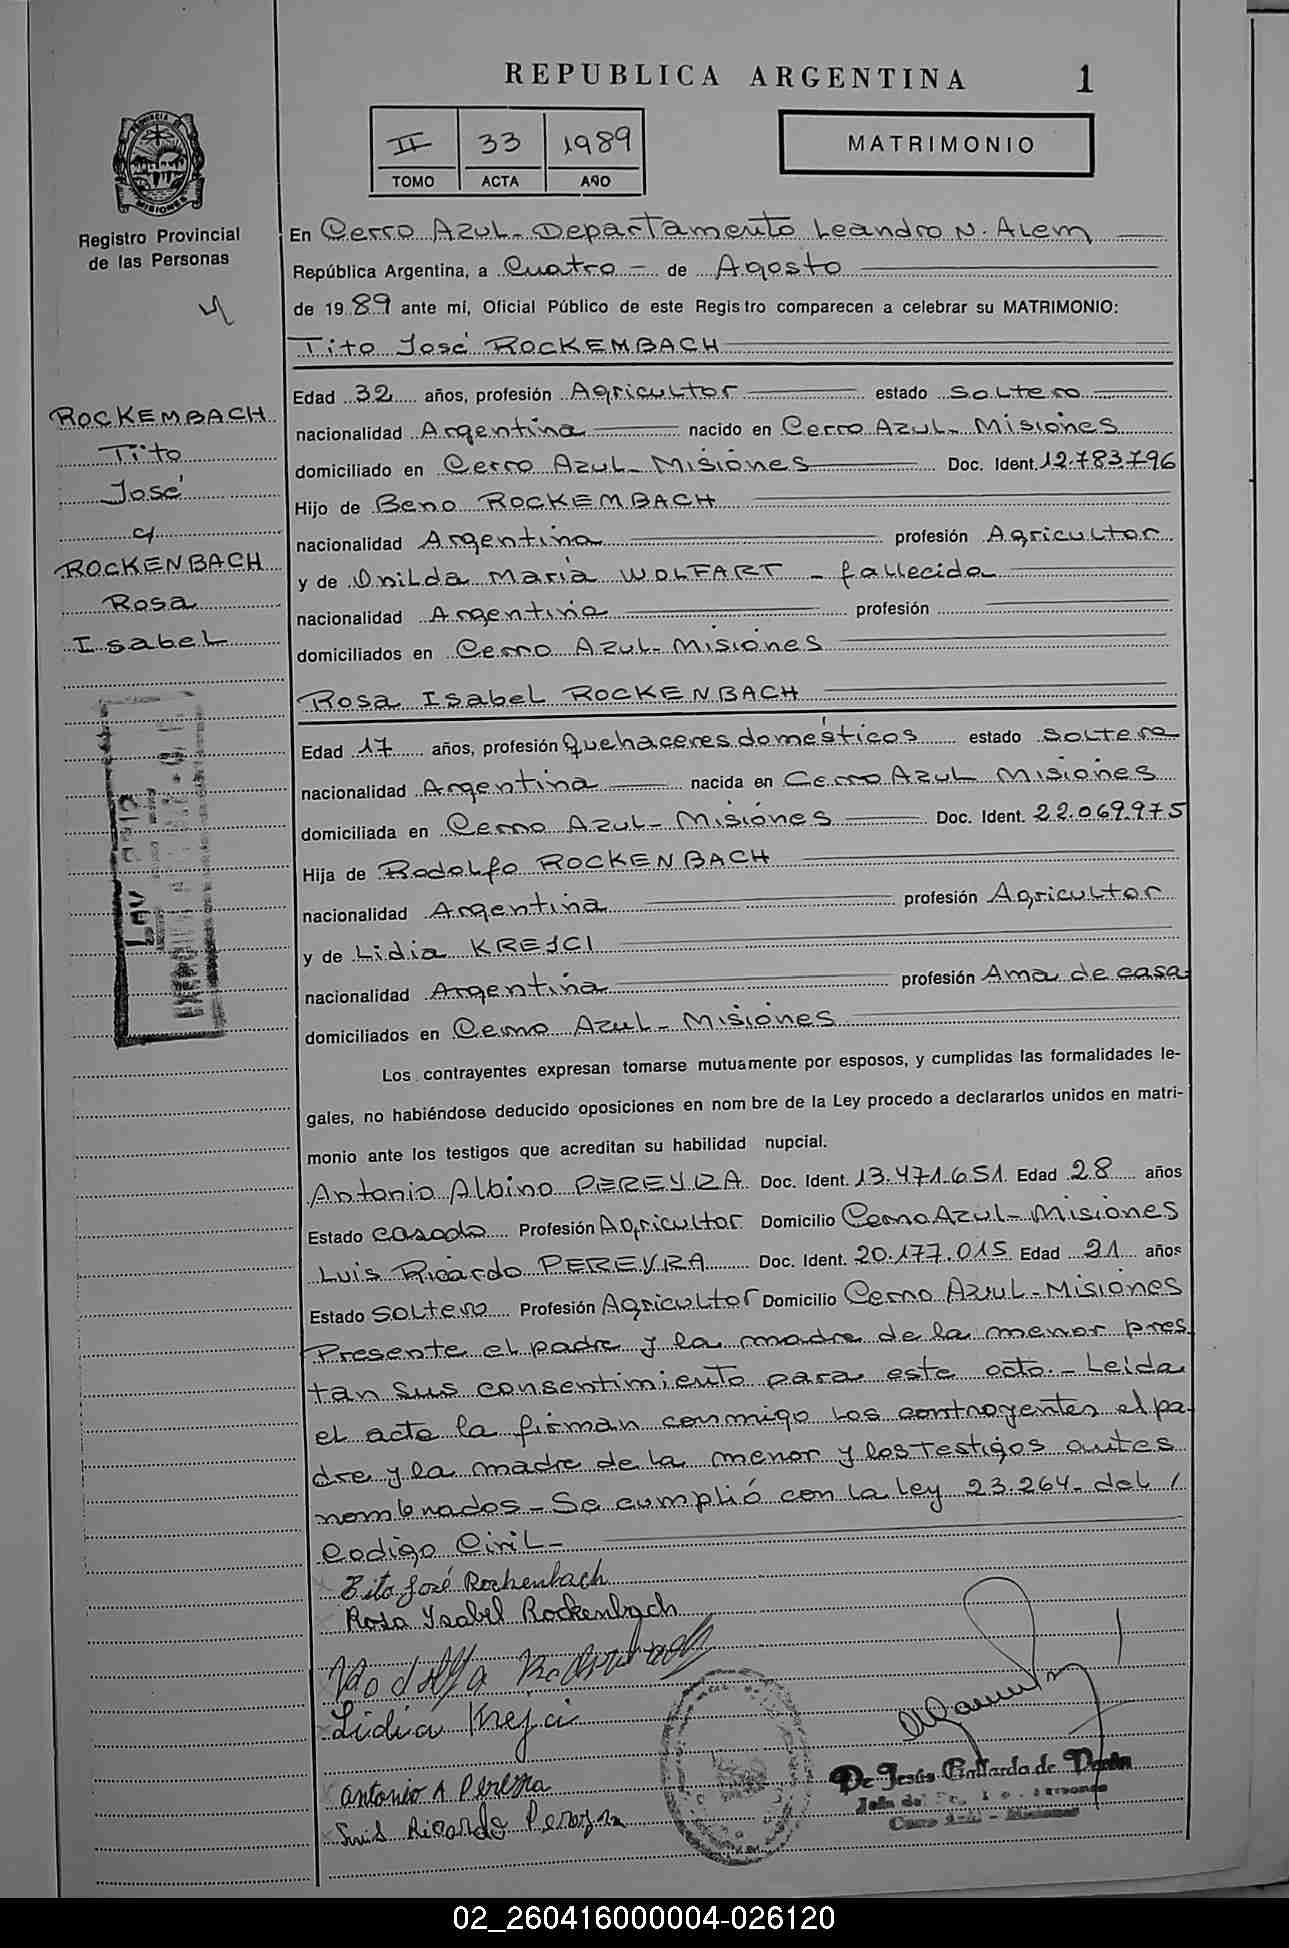 REPUBLICA ARGENTINA 1
II 33 1989
TOMO ACTA AÑO
MATRIMONIO
PROVINCIA DE
MISIONES
Registro Provincial
de las Personas
ROCKEMBACH
Tito
José
c/
ROCKENBACH
Rosa
Isabel
En Cerro Azul - Departamento Leandro N. Alem
República Argentina, a Cuatro - de Agosto
de 1989 ante mí, Oficial Público de este Registro comparecen a celebrar su MATRIMONIO:
Tito José ROCKEMBACH
Edad 32 años, profesión Agricultor estado Soltero
nacionalidad Argentina nacido en Cerro Azul - Misiones
domiciliado en Cerro Azul - Misiones Doc. Ident. 12.783.796
Hijo de Beno ROCKEMBACH
nacionalidad Argentina profesión Agricultor
y de Onilda Maria WOLFART - fallecida
nacionalidad Argentina profesión
domiciliados en Cerro Azul - Misiones
Rosa Isabel ROCKENBACH
Edad 17 años, profesión Quehaceres domésticos estado Soltera
nacionalidad Argentina nacida en Cerro Azul Misiones
domiciliada en Cerro Azul - Misiones Doc. Ident. 22.069.975
Hija de Rodolfo ROCKENBACH
nacionalidad Argentina profesión Agricultor
y de Lidia KREJCI
nacionalidad Argentina profesión Ama de casa
domiciliados en Cerro Azul - Misiones
Los contrayentes expresan tomarse mutuamente por esposos, y cumplidas las formalidades le-
gales, no habiéndose deducido oposiciones en nombre de la Ley procedo a declararlos unidos en matri-
monio ante los testigos que acreditan su habilidad nupcial.
Antonio Albino PEREYRA Doc. Ident. 13.471.651 Edad 28 años
Estado casado Profesión Agricultor Domicilio Cerro Azul - Misiones
Luis Ricardo PEREYRA Doc. Ident. 20.177.015 Edad 21 años
Estado Soltero Profesión Agricultor Domicilio Cerro Azul - Misiones
Presente el padre y la madre de la menor pres
tan sus consentimiento para este acto. - Leida
el acta la firman conmigo los contrayentes, el pa-
dre y la madre de la menor y los testigos antes
nombrados - Se cumplió con la ley 23.264. del /
Codigo Civil -
Tito José Rockenbach
Rosa Ysabel Rockenbach
Lidia Krejci
Antonio A Pereyra
Luis Ricardo Pereyra
De Jesús Gallardo de
Cerro Azul - Misiones
02_260416000004-026120